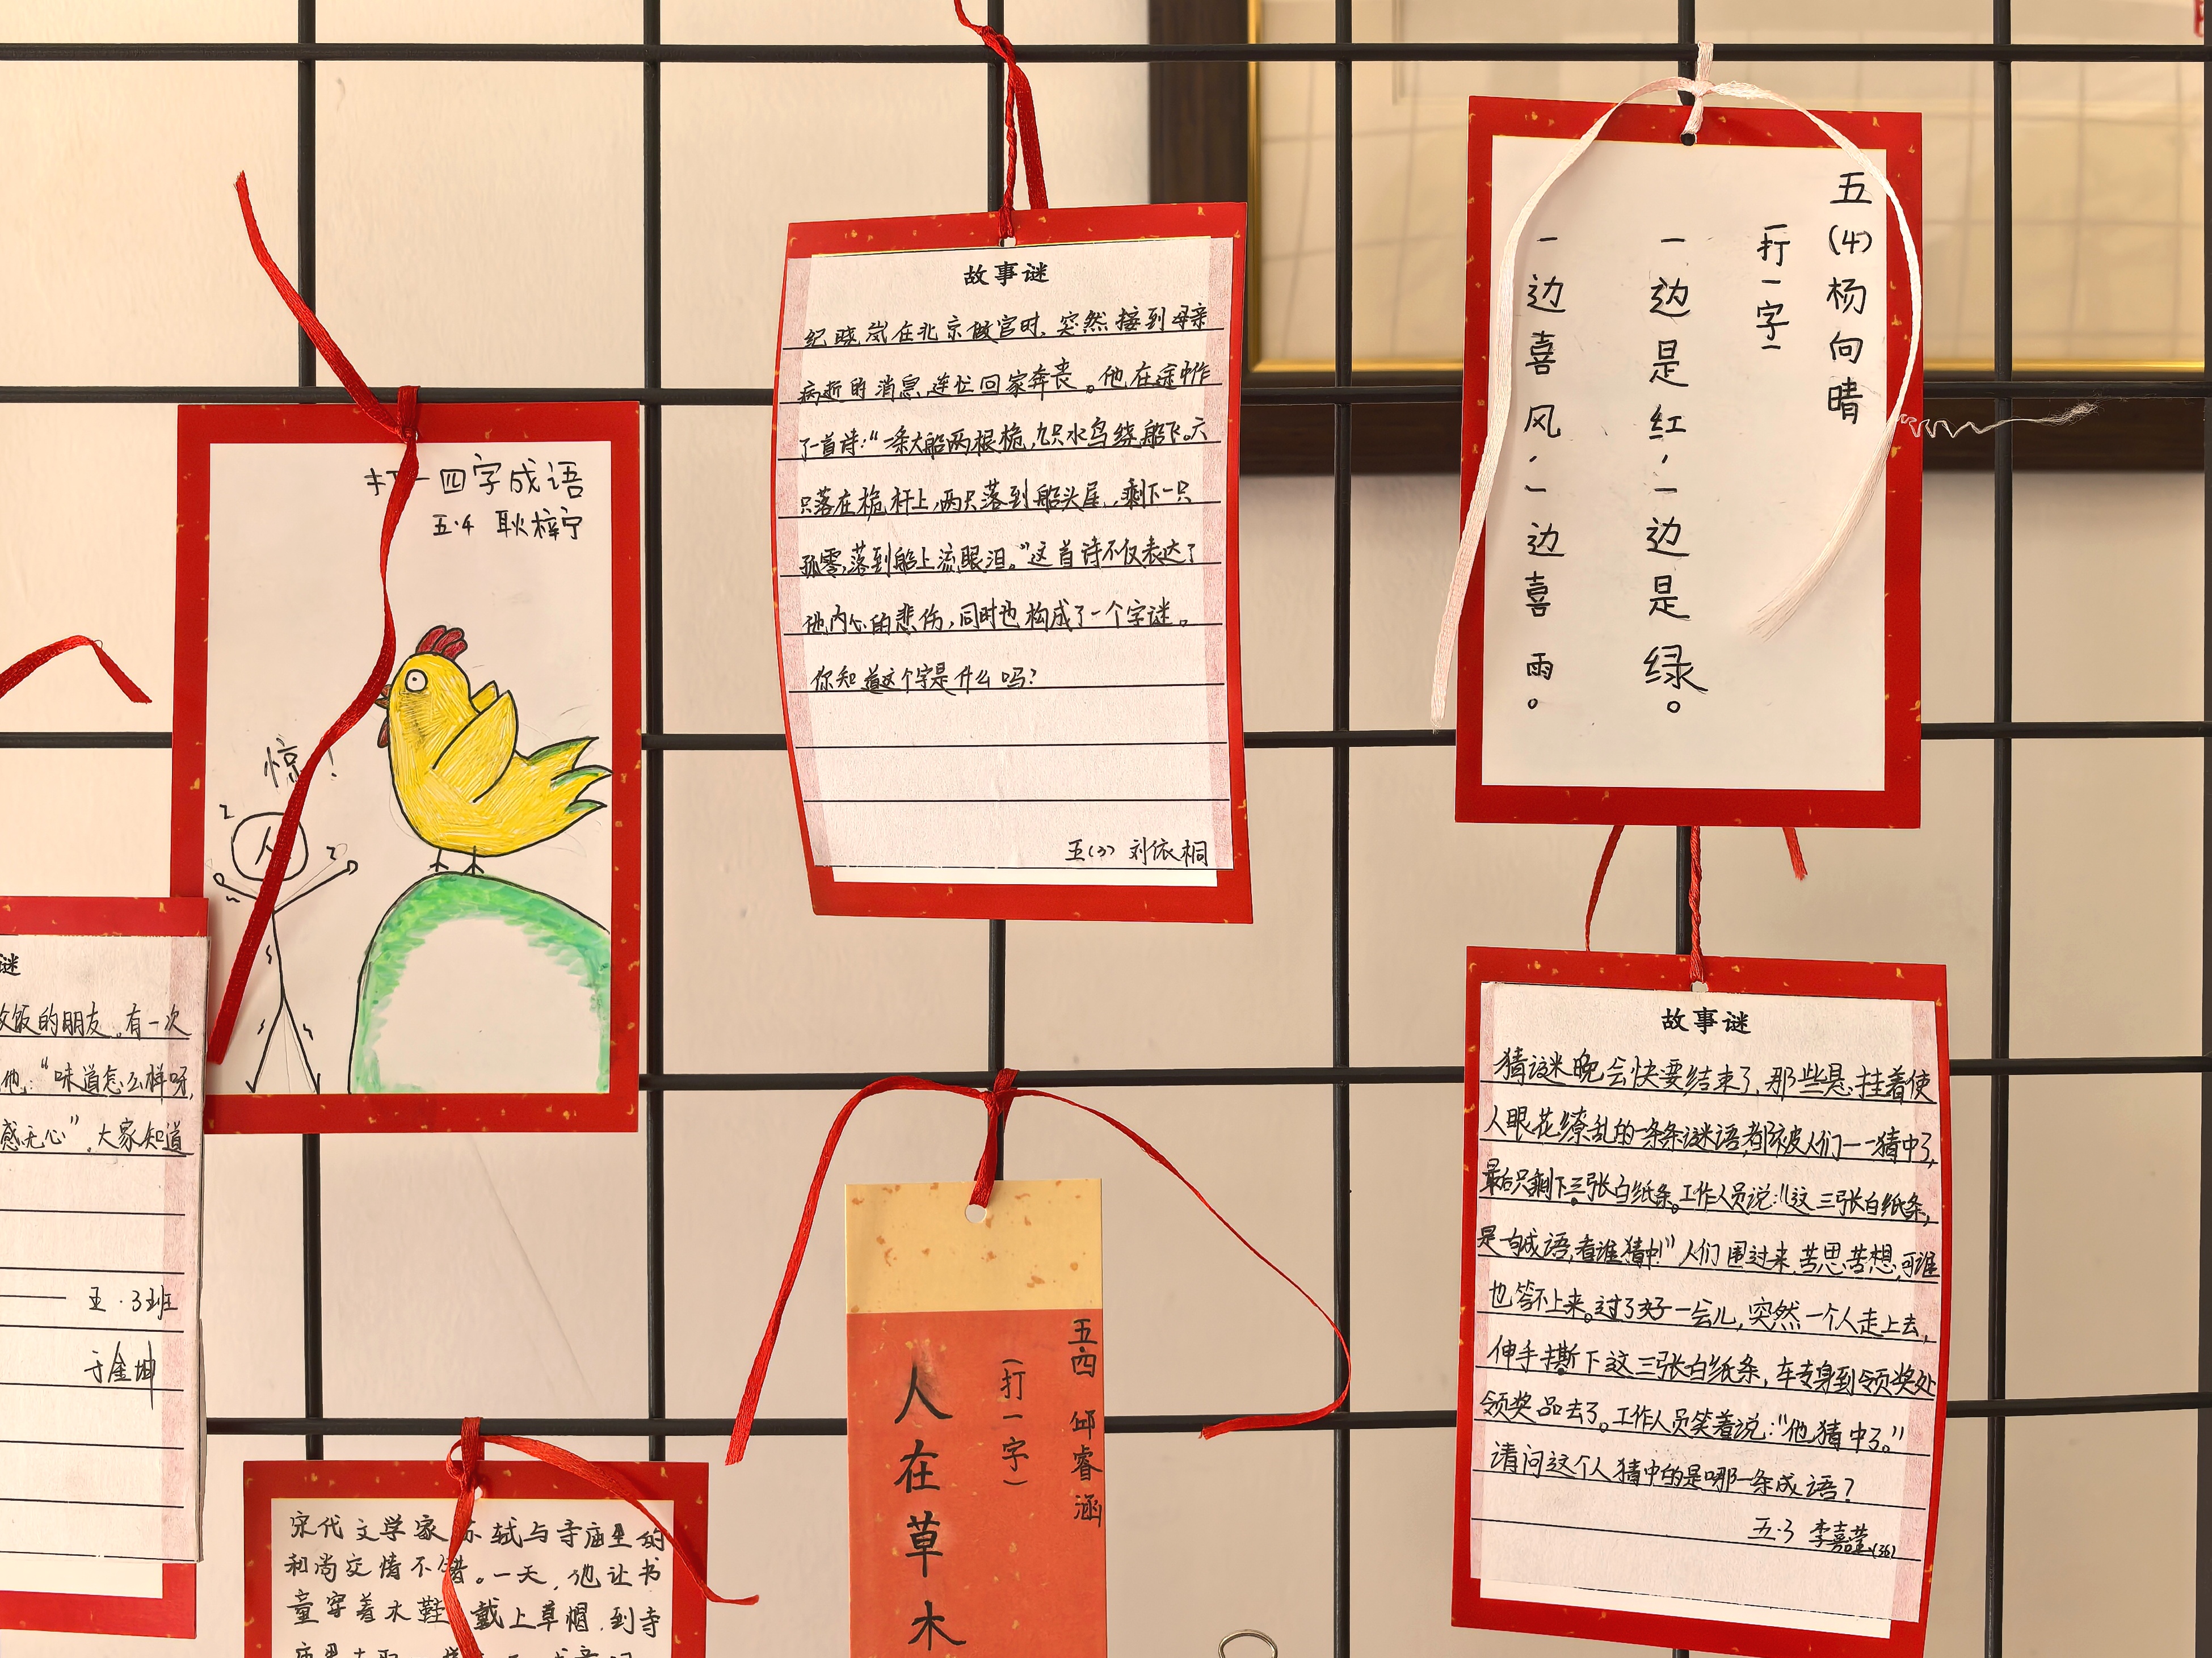 打一四字成语
五·4 耿梓宁
惊!
人
故事谜
纪晓岚在北京做官时,突然接到母亲
病逝的消息,连忙回家奔丧。他在途中作
了一首诗:“一条大船两根桅,九只水鸟绕船飞。六
只落在桅杆上,两只落到船头尾,剩下一只
孤零,落到船上流眼泪。”这首诗不仅表达了
他内心的悲伤,同时也构成了一个字谜。
你知道这个字是什么吗?
五(3) 刘依桐
五(4)杨向晴
(打一字)
一边是红,一边是绿。
一边喜风,一边喜雨。
谜
饭的朋友。有一次
他:“味道怎么样呀,
感无心”。大家知道
五·3班
于金坤
故事谜
猜谜晚会快要结束了,那些悬挂着使
人眼花缭乱的一条条谜语,都被人们一一猜中了,
最后只剩下三张白纸条。工作人员说:“这三张白纸条,
是一句成语,看谁猜中!”人们围过来,苦思苦想,可谁
也答不上来。过了好一会儿,突然一个人走上去,
伸手撕下这三张白纸条,转身到领奖处
领奖品去了。工作人员笑着说:“他猜中了。”
请问这个人猜中的是哪一条成语?
五·3 李嘉莹(36)
五四 邱睿涵
(打一字)
人在草木
宋代文学家苏轼与寺庙里的
和尚交情不错。一天,他让书
童穿着木鞋 戴上草帽,到寺